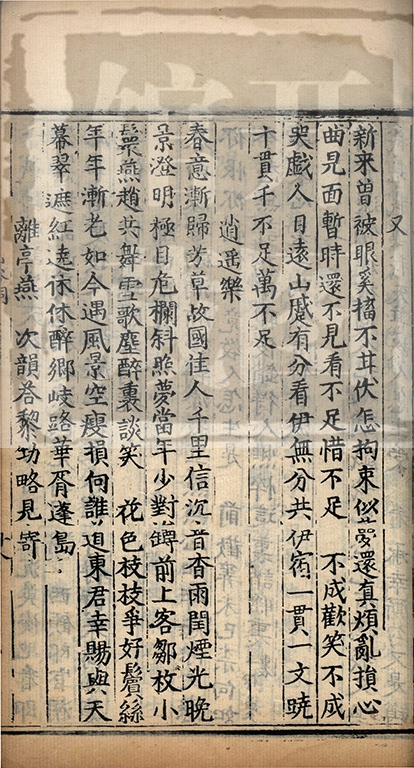 又
新来曾被眼奚搐不甘伏怎拘束似夢還真煩亂損心
曲見面暫時還不見看不足惜不足　不成歡笑不成
哭戲人目遠山蹙有分看伊無分共伊宿一貫一文蹺
十貫千不足萬不足
逍遥樂
春意漸歸芳草故國佳人千里信沉音杳雨閏煙光晚
景澄明極目危欄斜照夢當年少對罇前上客鄒枚小
鬟燕趙共舞雪歌塵醉裏談笑　花色枝枝爭好鬢絲
年年漸老如今遇風景空瘦損向誰道東君幸賜與天
幕翠遮紅遶休休醉鄉岐路華胥蓬島
離亭燕　次韻答黎功略見寄